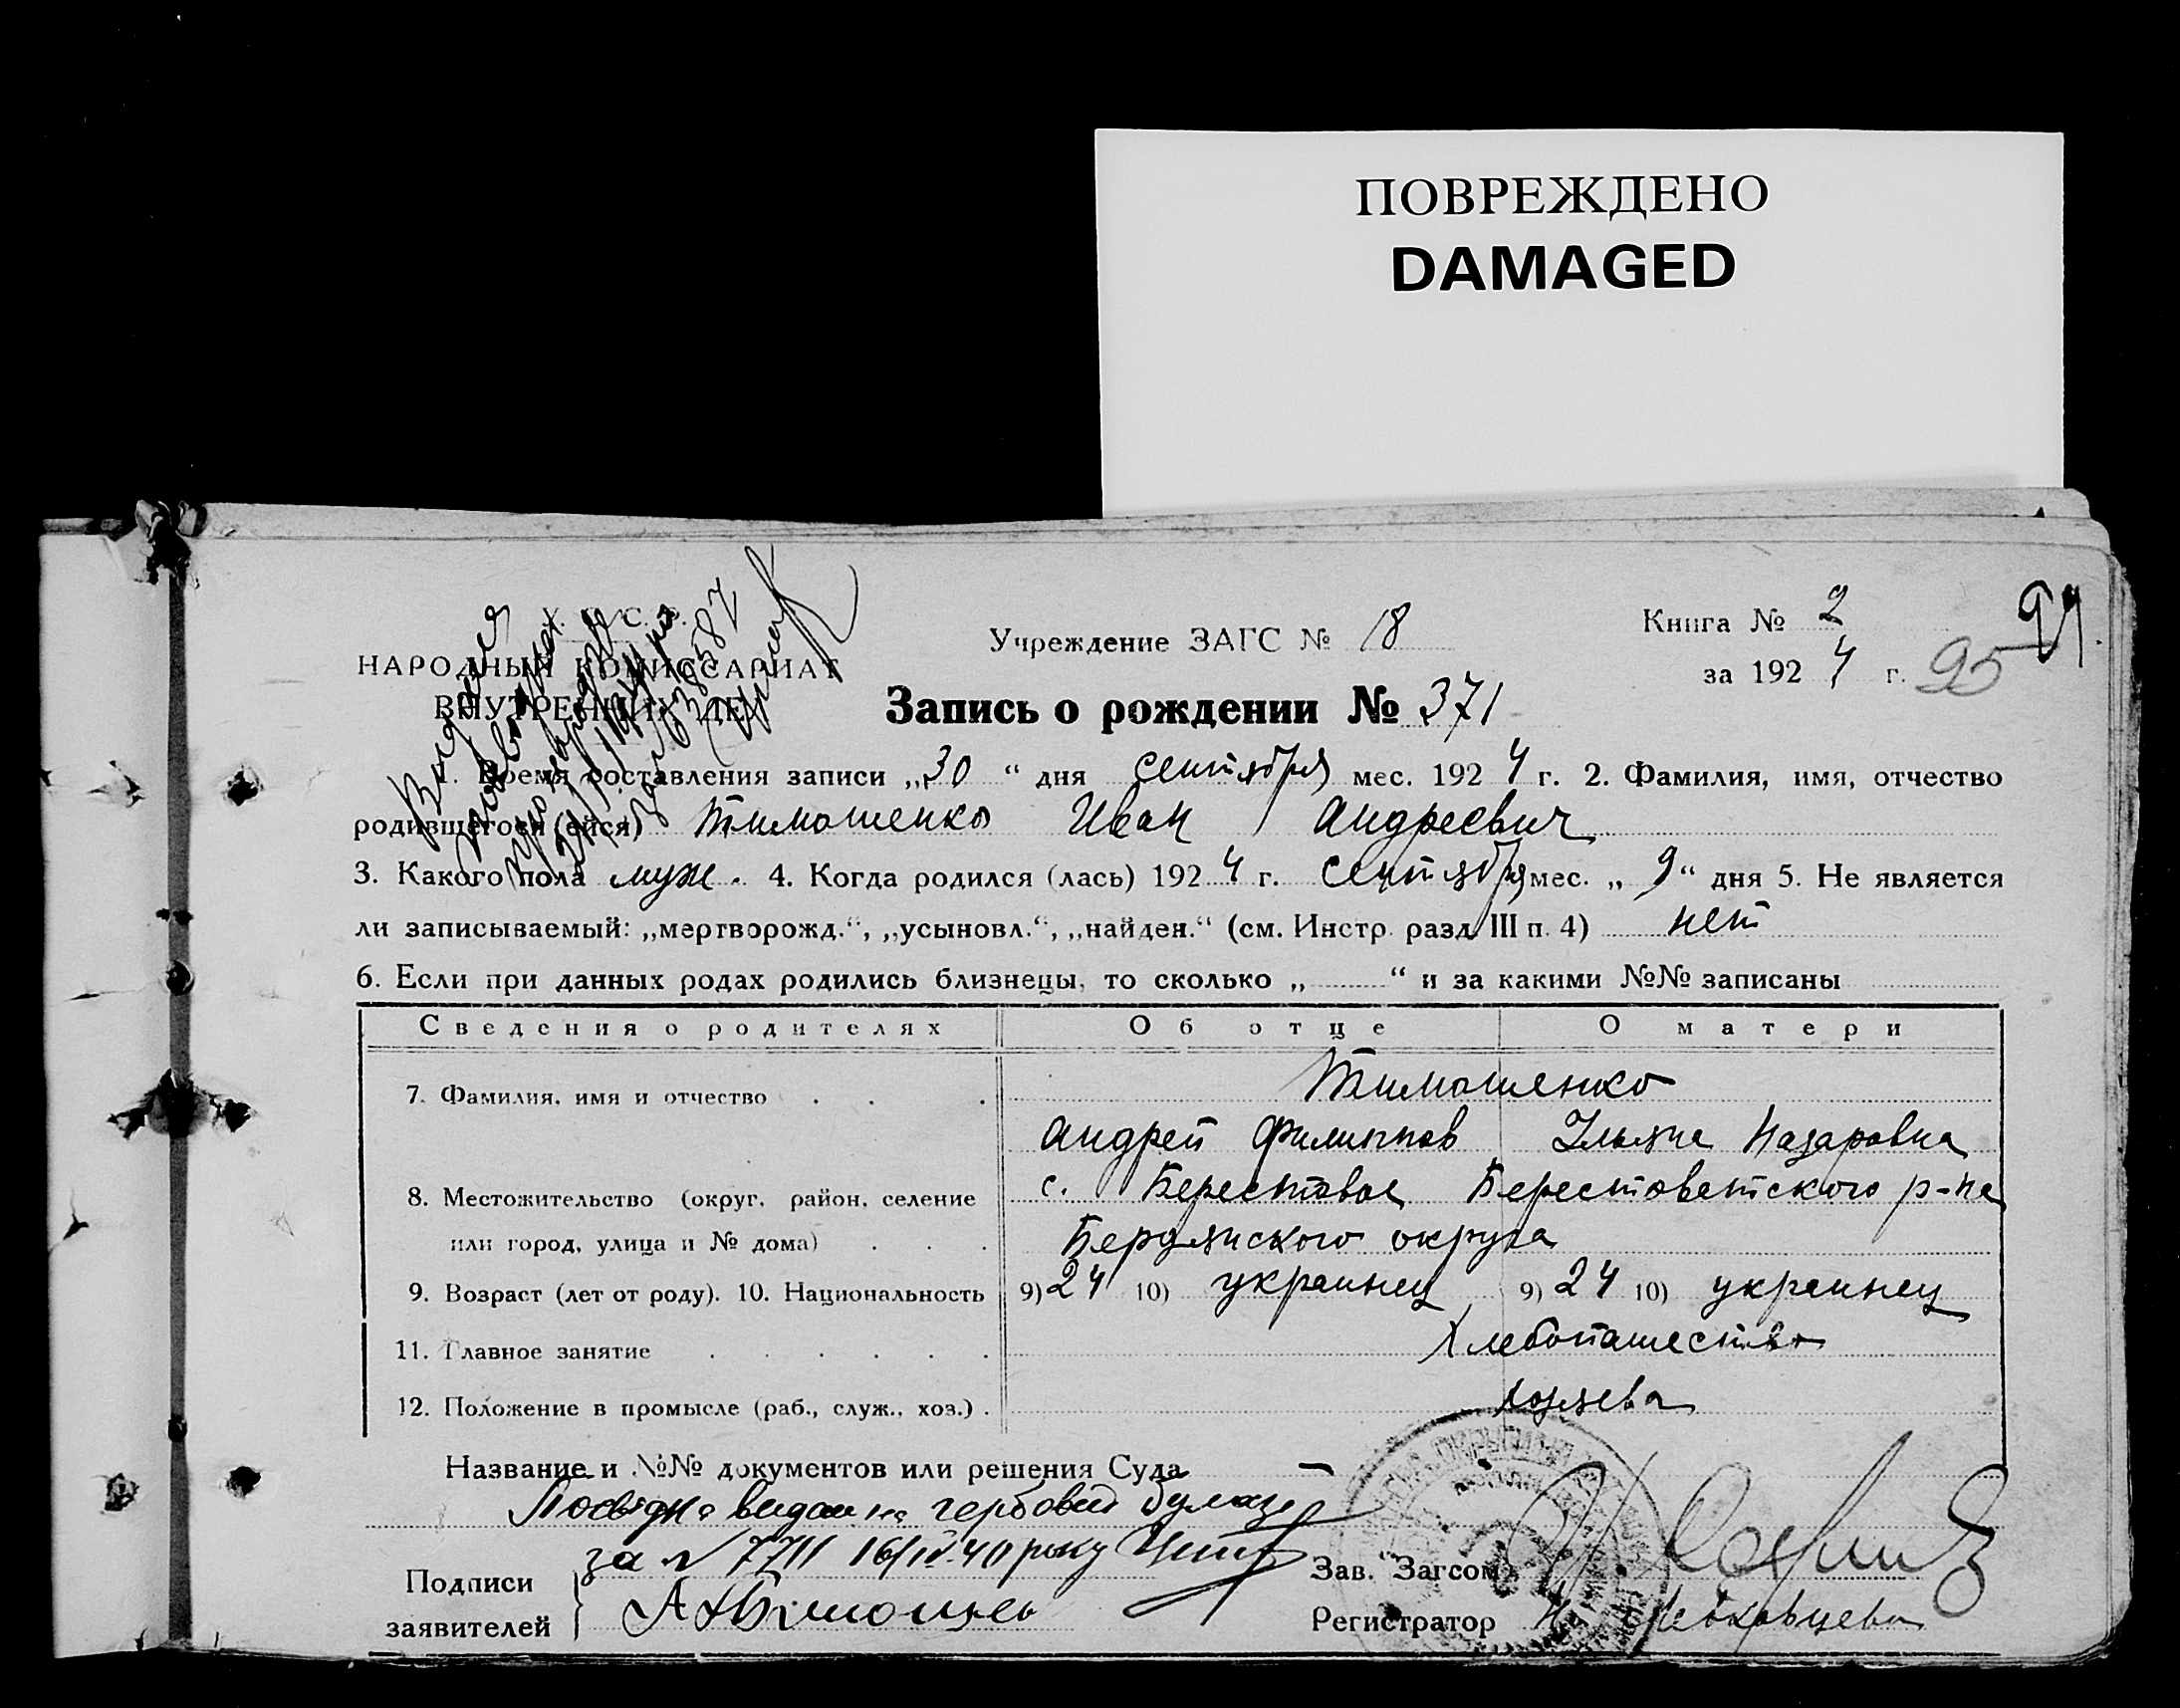 ПОВРЕЖДЕНО
DAMAGED
Книга № 2
Учреждение ЗАГС № 18
за 1924 г. 95
НАРОДНЫЙ КОМИССАРИАТ
ВНУТРЕННИХ ДЕЛ
Запись о рождении № 371
1. Время составления записи „30“ дня сентября мес. 1924 г. 2. Фамилия, имя, отчество
родившегося (ейся) Тимошенко Иван Андреевич
3. Какого пола муж. 4. Когда родился (лась) 1924 г. сентября мес. „9“ дня 5. Не является
ли записываемый: „мертворожд.“, „усыновл.“, „найден.“ (см. Инстр. разд. III п. 4) нет
6. Если при данных родах родились близнецы, то сколько „ “ и за какими №№ записаны
Сведения о родителях Об отце О матери
7. Фамилия, имя и отчество Тимошенко
Андрей Филиппов Ульяна Назаровна
8. Местожительство (округ, район, селение с. Берестовое Берестоветского р-на
или город, улица и № дома) Бердянского округа
9. Возраст (лет от роду). 10. Национальность 9) 24 10) украинец 9) 24 10) украинец
11. Главное занятие Хлебопашество
12. Положение в промысле (раб., служ., хоз.)
Название и №№ документов или решения Суда —
видана гербовій бумазі
за № 7711 16/IV-40 року
Подписи
заявителей
Зав. Загсом
Регистратор